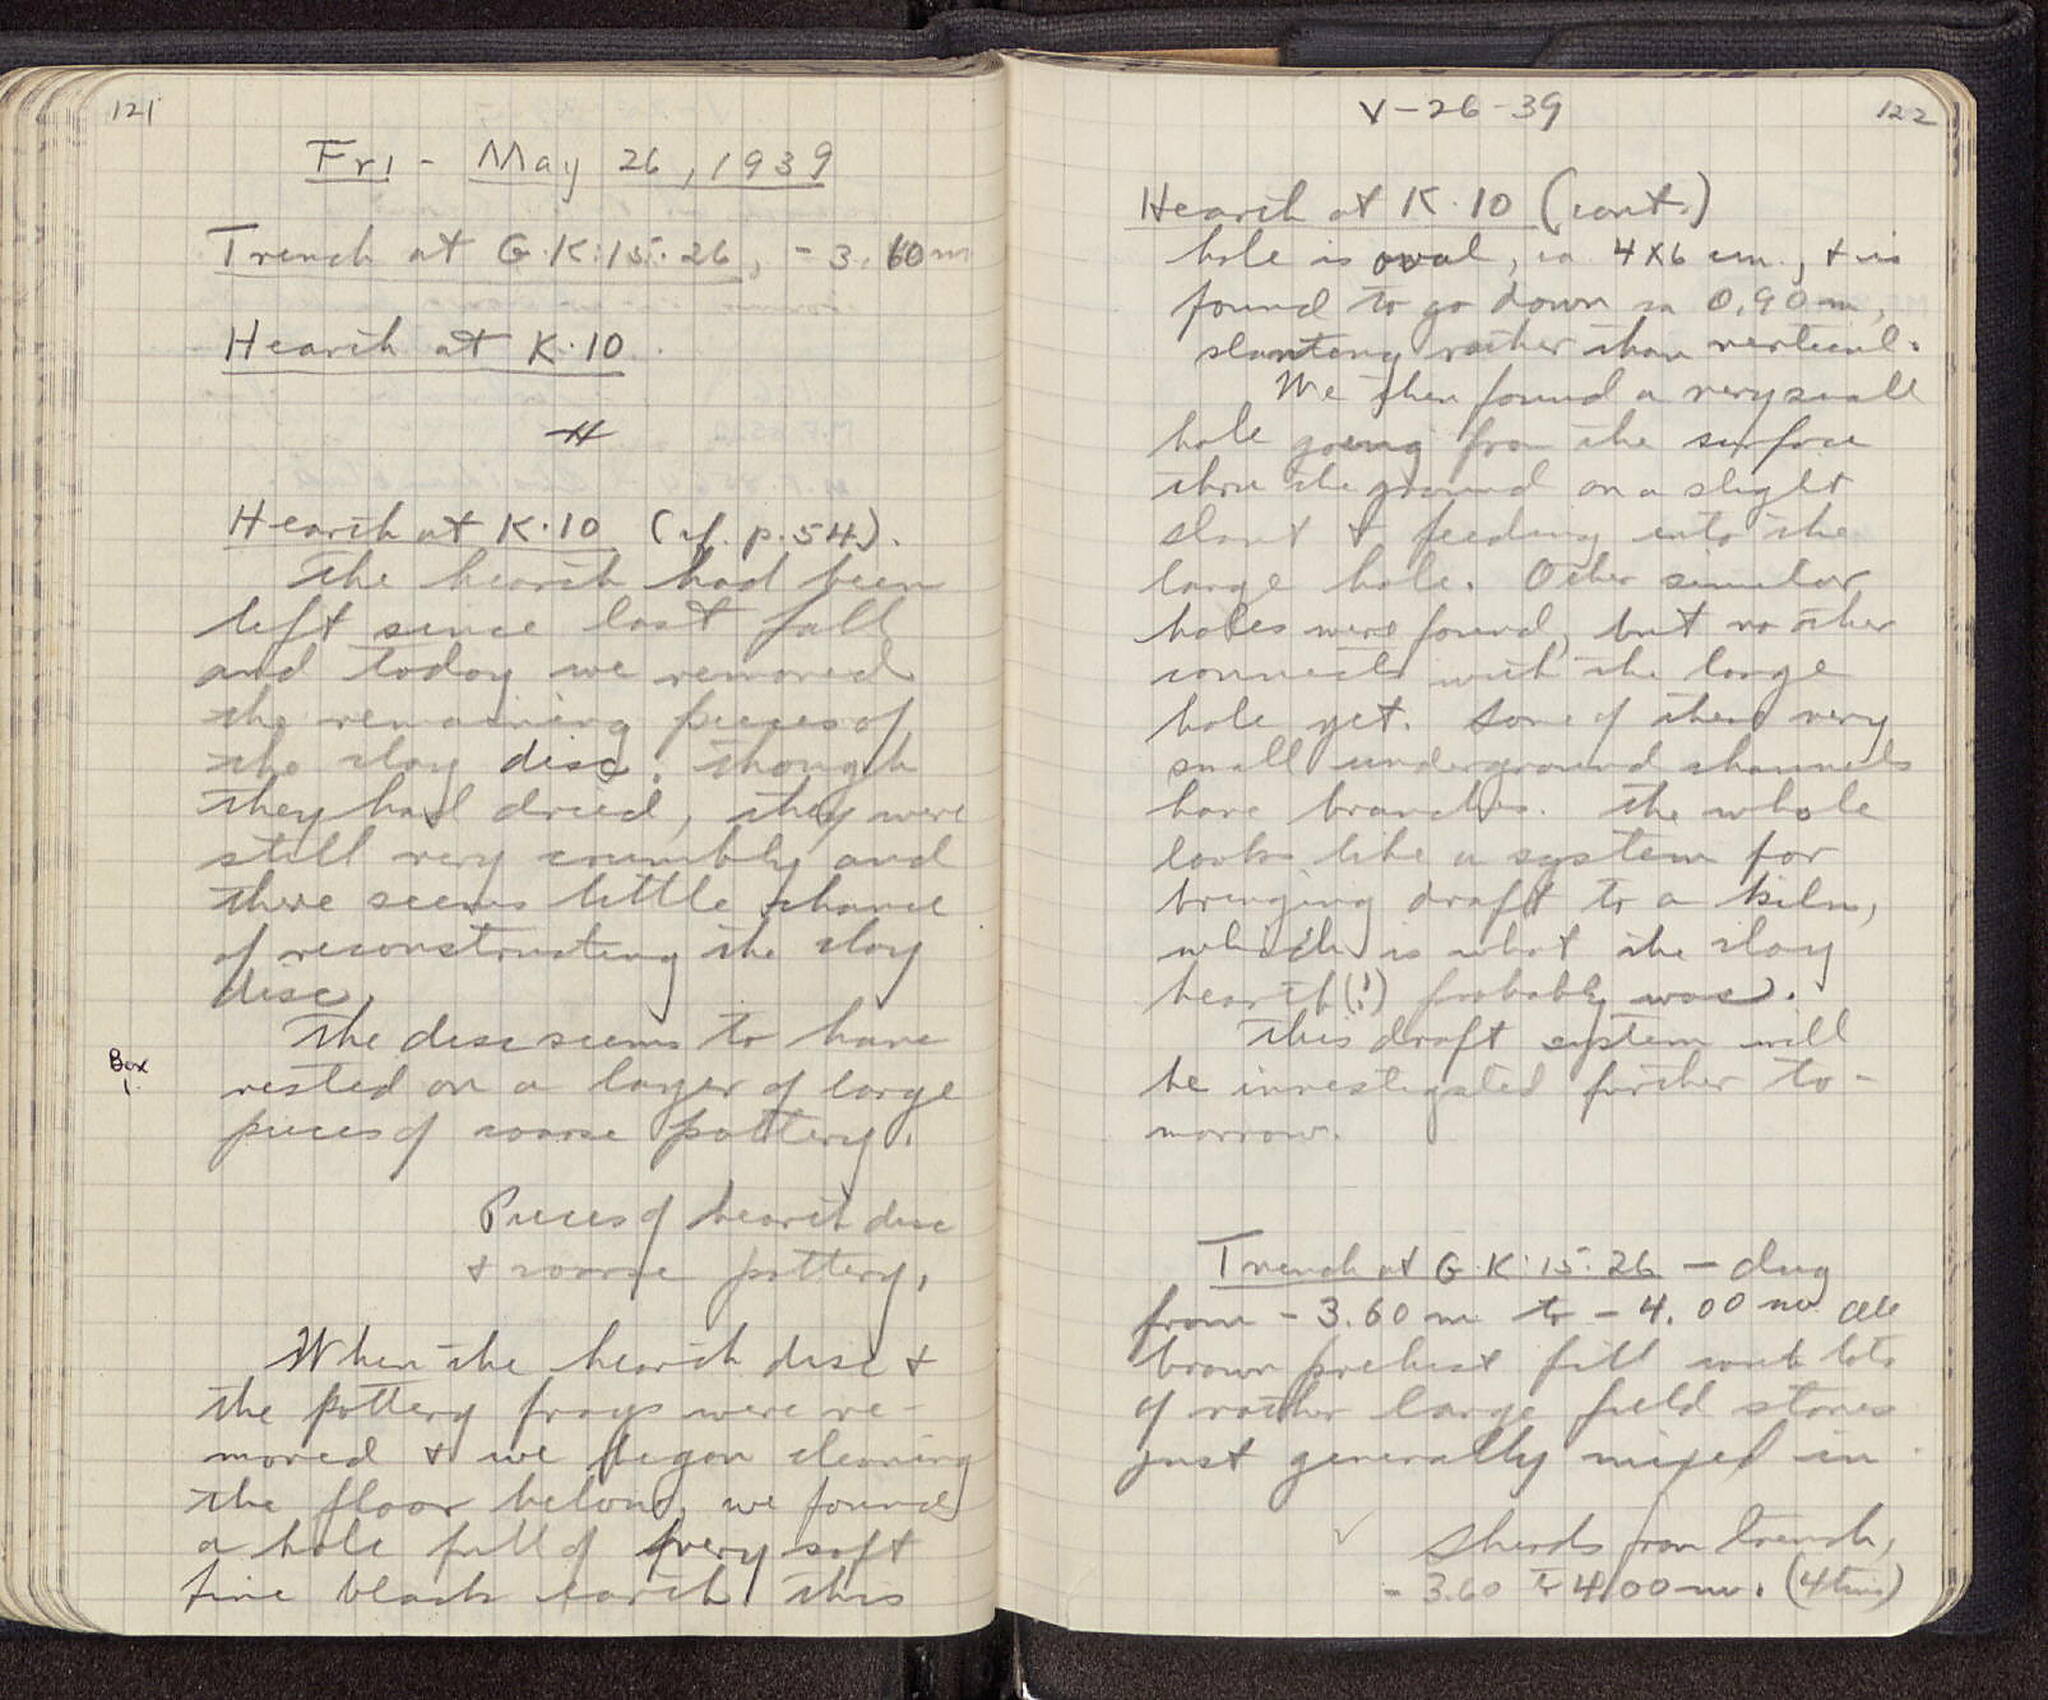 121
Fri - May 26, 1939
Trench at G·K:15·26, -3.60m
Hearth at K·10
Hearth at K·10 (cf. p. 54).
The hearth had been
left since last fall
and today we removed
the remaining pieces of
the clay disc; though
they had dried, they were
still very crumbly and
there seems little chance
of reconstructing the clay
disc.
The disc seems to have
Box
1.
rested on a layer of large
pieces of coarse pottery.
Pieces of hearth disc
+ coarse pottery,
When the hearth disc +
the pottery frags were re-
moved + we began cleaning
the floor below, we found
a hole full of very soft
fine black earth. This
V-26-39
122
Hearth at K·10 (cont.)
hole is oval, ca 4x6 cm., + is
found to go down ca 0.90m,
slanting rather than vertical.
We then found a very small
hole going from the surface
thru the ground on a slight
slant + feeding into the
large hole. Other similar
holes were found, but no other
connects with the large
hole yet. Some of these very
small underground channels
have branches. The whole
looks like a system for
bringing draft to a kiln,
which is what the clay
hearth(!) probably was.
This draft system will
be investigated further to-
morrow.
Trench at G·K:15·26 - dug
from -3.60m to -4.00m. All
brown prehist fill with lots
of rather large field stones
just generally mixed in
✓ Sherds from trench,
-3.60 to 4.00m. (4 tins)